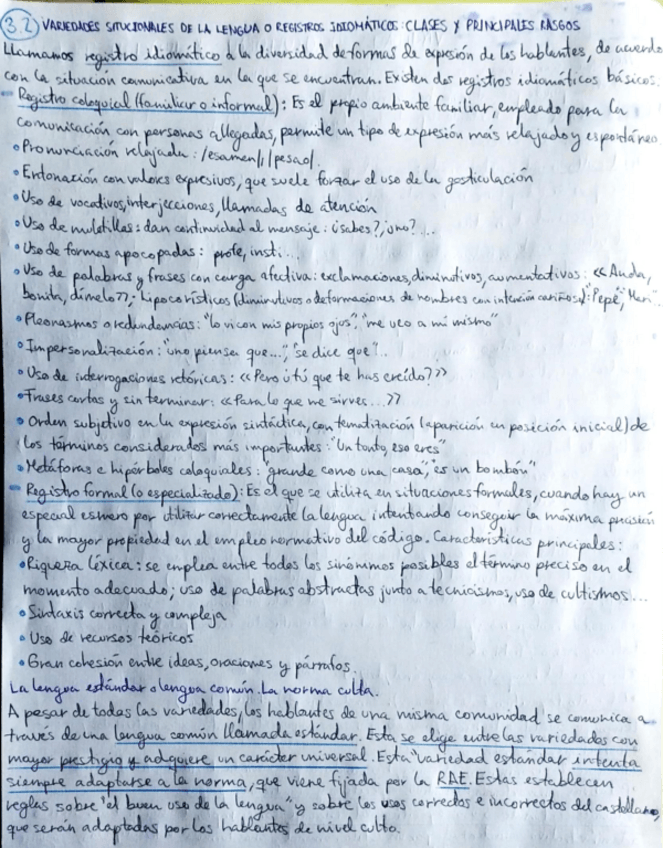 3.2) VARIEDADES SITUCIONALES DE LA LENGUA O REGISTROS IDIOMÁTICOS: CLASES Y PRINCIPALES RASGOS
Llamamos registro idiomático a la diversidad de formas de expresión de los hablantes, de acuerdo
con la situación comunicativa en la que se encuentran. Existen dos registros idiomáticos básicos.
- Registro coloquial (familiar o informal): Es el propio ambiente familiar, empleado para la
comunicación con personas allegadas, permite un tipo de expresión más relajado y espontáneo.
• Pronunciación relajada: /esamen/, /pesao/.
• Entonación con valores expresivos, que suele forzar el uso de la gesticulación
• Uso de vocativos, interjecciones, llamadas de atención
• Uso de muletillas: dan continuidad al mensaje: ¿sabes?, ¿no?...
• Uso de formas apocopadas: profe, insti...
• Uso de palabras y frases con carga afectiva: exclamaciones, diminutivos, aumentativos: «Anda,
bonita, dímelo»; hipocorísticos (diminutivos o deformaciones de nombres con intención cariñosa): "Pepe", "Mari".
• Pleonasmos o redundancias: "lo vi con mis propios ojos", "me veo a mí mismo"
• Impersonalización: "uno piensa que...", "se dice que"...
• Uso de interrogaciones retóricas: «Pero ¿tú que te has creído?»
• Frases cortas y sin terminar: «Para lo que me sirves...»
• Orden subjetivo en la expresión sintáctica, con tematización (aparición en posición inicial) de
los términos considerados más importantes: "Un tonto, eso eres"
• Metáforas e hipérboles coloquiales: "grande como una casa", "es un bombón"
- Registro formal (o especializado): Es el que se utiliza en situaciones formales, cuando hay un
especial esmero por utilizar correctamente la lengua intentando conseguir la máxima precisión
y la mayor propiedad en el empleo normativo del código. Características principales:
• Riqueza léxica: se emplea entre todos los sinónimos posibles el término preciso en el
momento adecuado; uso de palabras abstractas junto a tecnicismos, uso de cultismos...
• Sintaxis correcta y compleja
• Uso de recursos teóricos
• Gran cohesión entre ideas, oraciones y párrafos.
La lengua estándar o lengua común. La norma culta.
A pesar de todas las variedades, los hablantes de una misma comunidad se comunica a
través de una lengua común llamada estándar. Esta se elige entre las variedades con
mayor prestigio y adquiere un carácter universal. Esta "variedad estándar" intenta
siempre adaptarse a la norma, que viene fijada por la RAE. Estas establecen
reglas sobre "el buen uso de la lengua" y sobre los usos correctos e incorrectos del castellano,
que serán adaptadas por los hablantes de nivel culto.